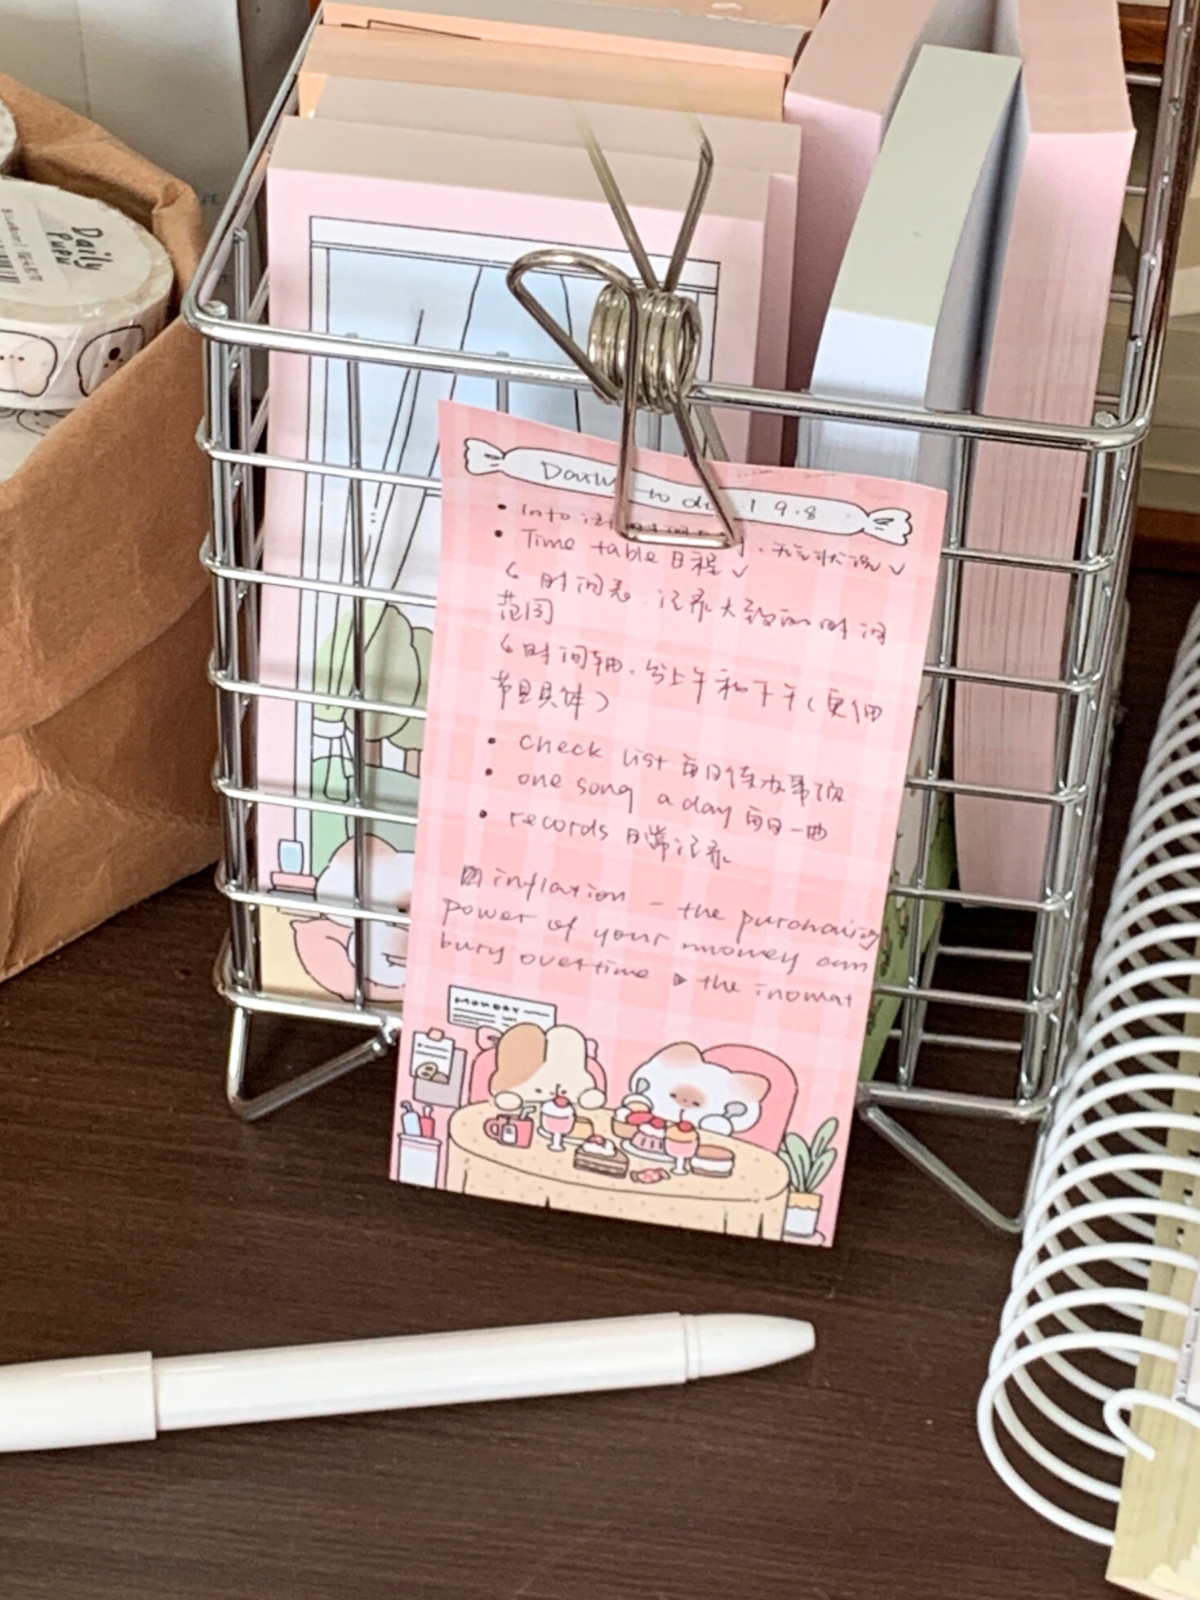 Daily
Pupu
Daily to do 1 9.8
• Into
• Time table 日程 ✓
时间表. 记录大致的时间
范围
时间轴. 分上午和下午(更细
节且具体)
• check list 每日待办事项
• one song a day 每日一曲
• records 日常记录
inflation - the purchasing
power of your money can
bury overtime the
monday